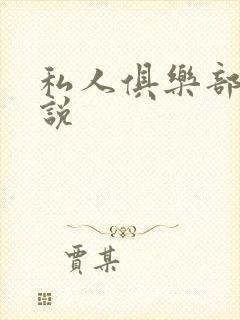 私人俱樂部
說
賈某